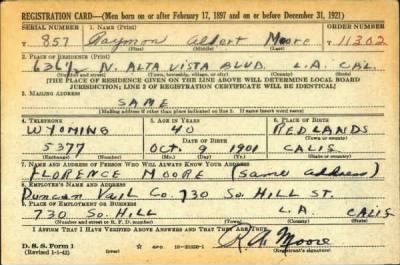 REGISTRATION CARD—(Men born on or after February 17, 1897 and on or before December 31, 1921)
SERIAL NUMBER 1. NAME (Print) ORDER NUMBER
T 857 Raymon Albert Moore 11302
(First) (Middle) (Last)
2. PLACE OF RESIDENCE (Print)
636½ N. ALTA VISTA BLVD. L.A. CAL.
(Number and street) (Town, township, village, or city) (County) (State)
[THE PLACE OF RESIDENCE GIVEN ON THE LINE ABOVE WILL DETERMINE LOCAL BOARD
JURISDICTION; LINE 2 OF REGISTRATION CERTIFICATE WILL BE IDENTICAL]
3. MAILING ADDRESS
SAME
[Mailing address if other than place indicated on line 2. If same insert word same]
4. TELEPHONE 5. AGE IN YEARS 6. PLACE OF BIRTH
WYOMING 40 REDLANDS
DATE OF BIRTH (Town or county)
5377 OCT. 9 1901 CALIF
(Exchange) (Number) (Mo.) (Day) (Yr.) (State or country)
7. NAME AND ADDRESS OF PERSON WHO WILL ALWAYS KNOW YOUR ADDRESS
FLORENCE MOORE (same address)
8. EMPLOYER'S NAME AND ADDRESS
Duncan Vail Co. 730 So. HILL ST.
9. PLACE OF EMPLOYMENT OR BUSINESS
730 So. HILL L.A. CALIF
(Number and street or R. F. D. number) (Town) (County) (State)
I AFFIRM THAT I HAVE VERIFIED ABOVE ANSWERS AND THAT THEY ARE TRUE.
D. S. S. Form 1 R A Moore
(Revised 1-1-42) (over) (Registrant's signature)